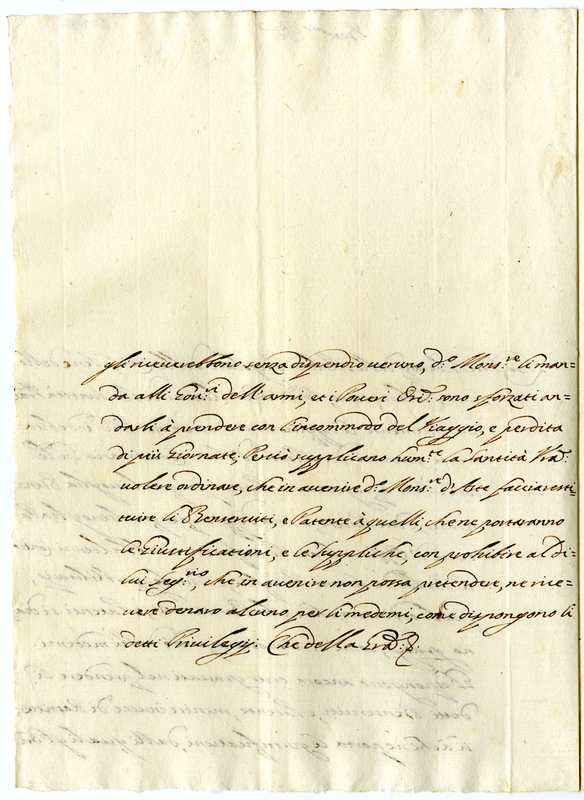 gli riceverebbono senza dispendio veruno, d.º Mons.re li man-
da alli Gou.ri dell'armi, et i Poueri Or.i sono sforzati an-
darli à prendere con l'incommodo del Viaggio, e perdita
di più Giornate; Perciò supplicano hum.te la Santità V.a
volere ordinare, che in auenire d.º Mons.re d'Aste faccia resti-
tuire li Benseruiti, e Patente à quelli, che ne portaranno
le Giustificationi, e le suppliche, con prohibire al di
lui Seg.rio, che in auenire non possa pretendere, ne rice-
uere denaro alcuno per li medemi, come dispongono li
detti Privilegij. Che della